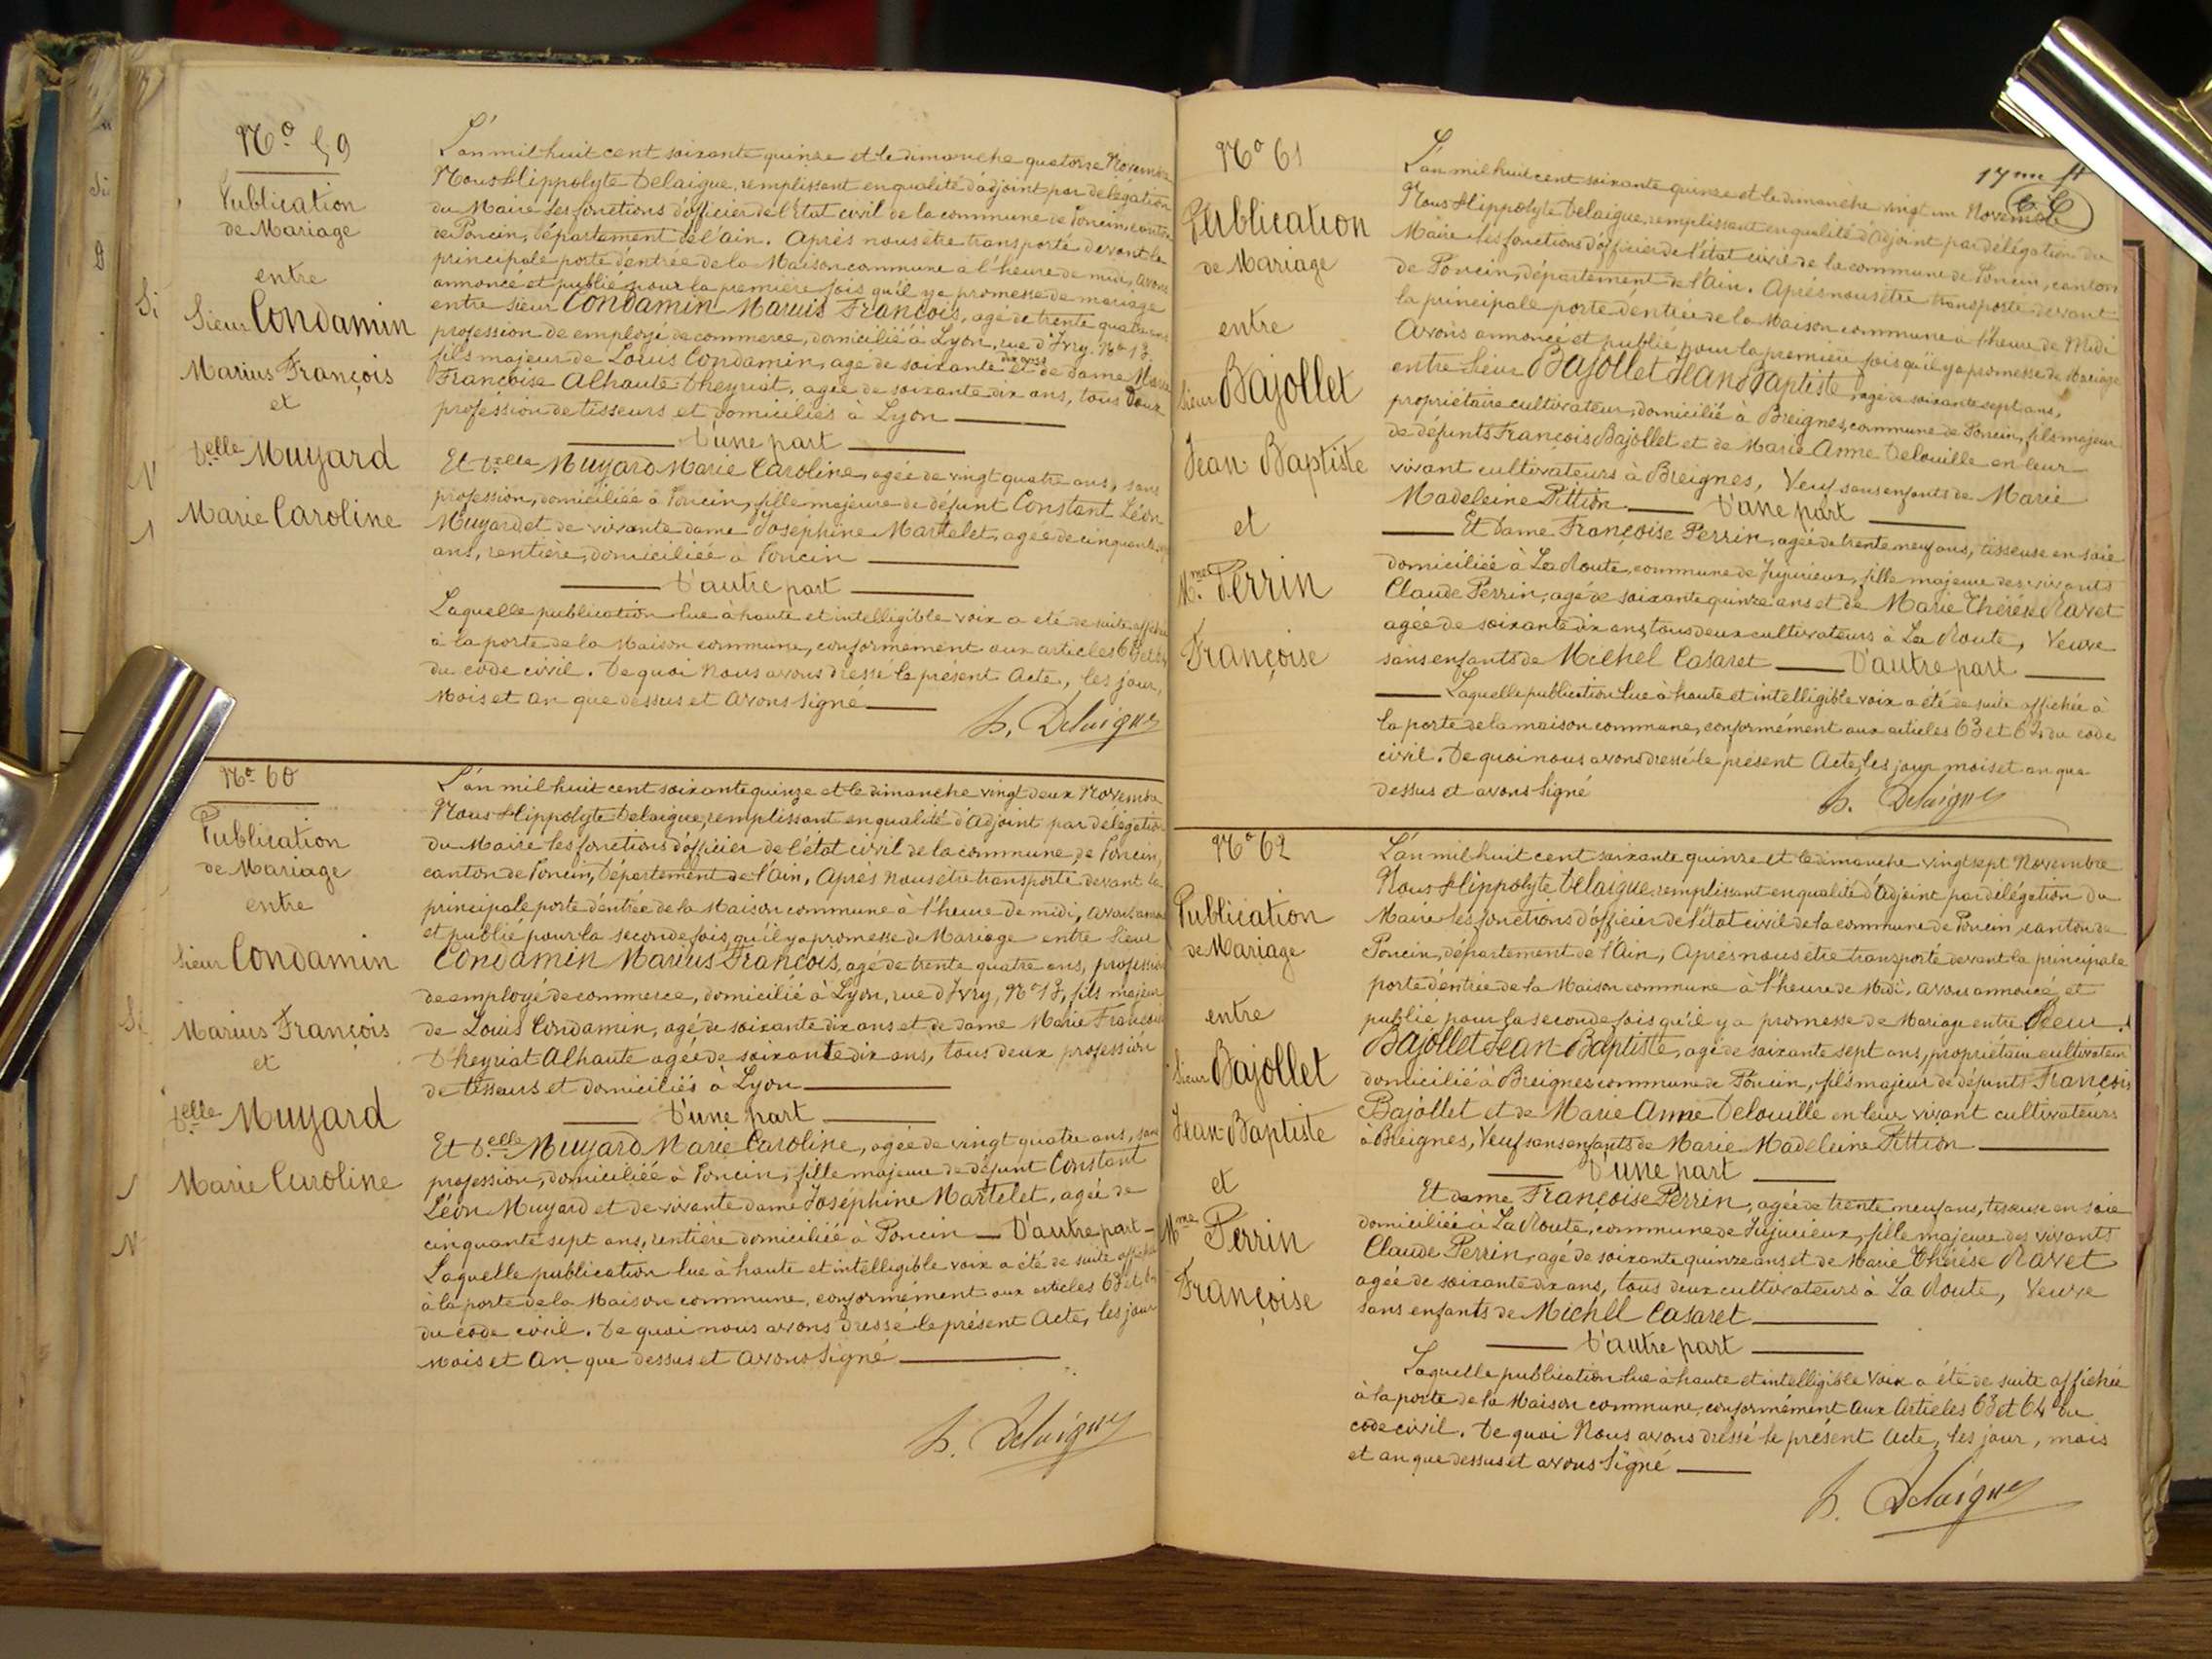 No 59
Publication
de Mariage
entre
Sieur Condamin
Marius François
et
Delle Muyard
Marie Caroline
L'an mil huit cent soixante quinze et le dimanche quatorze Novembre
Nous Hippolyte Delaigue, remplissant en qualité d'adjoint par délégation
du Maire les fonctions d'officier de l'Etat civil de la commune de Poncin, canton
de Poncin, département de l'Ain. Après nous être transporté devant la
principale porte d'entrée de la Maison commune à l'heure de midi, avons
annoncé et publié pour la première fois qu'il y a promesse de mariage
entre Sieur Condamin Maruis François, agé de trente quatre ans
profession de employé de commerce, domicilié à Lyon, rue d'Ivry, No 13,
fils majeur de Louis Condamin, agé de soixante dix ans et de dame Marie
Françoise Alhaute Dheyriat, agée de soixante dix ans, tous deux
profession de tisseurs et domiciliés à Lyon
D'une part
Et Delle Muyard Marie Caroline, agée de vingt quatre ans, sans
profession, domiciliée à Poncin, fille majeure de défunt Constant Léon
Muyard et de vivante dame Joséphine Martelet, agée de cinquante sept
ans, rentière, domiciliée à Poncin
D'autre part
Laquelle publication lue à haute et intelligible voix a été de suite affichée
à la porte de la Maison commune, conformément aux articles 63 et 64
du code civil. De quoi Nous avons dressé le présent Acte, les jour,
Mois et An que dessus et Avons Signé
h. Delaigue
No 60
Publication
de Mariage
entre
Sieur Condamin
Marius François
et
Delle Muyard
Marie Caroline
L'an mil huit cent soixante quinze et le dimanche vingt deux Novembre
Nous Hippolyte Delaigue, remplissant en qualité d'Adjoint par délégation
du Maire les fonctions d'officier de l'état civil de la commune de Poncin,
canton de Poncin, Département de l'Ain, Après Nous être transporté devant la
principale porte d'entrée de la Maison commune à l'heure de midi, avons annoncé
et publié pour la seconde fois, qu'il y a promesse de Mariage entre Sieur
Condamin Marius François, agé de trente quatre ans, profession
de employé de commerce, domicilié à Lyon, rue d'Ivry, No 13, fils majeur
de Louis Condamin, agé de soixante dix ans et de dame Marie Françoise
D'heyriat Alhaute agée de soixante dix ans, tous deux profession
de tisseurs et domiciliés à Lyon
D'une part
Et Delle Muyard Marie Caroline, agée de vingt quatre ans, sans
profession, domiciliée à Poncin, fille majeure de défunt Constant
Léon Muyard et de vivante dame Joséphine Martelet, agée de
cinquante sept ans, rentière domiciliée à Poncin — D'autre part —
Laquelle publication lue à haute et intelligible voix a été de suite affichée
à la porte de la Maison commune, conformément aux articles 63 et 64
du code civil. De quoi nous avons dressé le présent Acte, les jour
Mois et An que dessus et Avons Signé
h. Delaigue
17me ft
No 61
Publication
de Mariage
entre
Sieur Bajollet
Jean Baptiste
et
Mme Perrin
Françoise
L'an mil huit cent soixante quinze et le dimanche vingt un Novembre
Nous Hippolyte Delaigue, remplissant en qualité d'Adjoint par délégation du
Maire les fonctions d'officier de l'état civil de la commune de Poncin, canton
de Poncin, département de l'Ain. Après nous être transporté devant
la principale porte d'entrée de la Maison commune à l'heure de Midi
Avons annoncé et publié pour la première fois qu'il y a promesse de Mariage
entre Sieur Bajollet Jean Baptiste, agé de soixante sept ans,
propriétaire cultivateur, domicilié à Breignes, commune de Poncin, fils majeur
de défunts François Bajollet et de Marie Anne Delouille en leur
vivant cultivateurs à Breignes, Veuf sans enfants de Marie
Madeleine Pittion — D'une part
Et Dame Françoise Perrin, agée de trente neuf ans, tisseuse en soie
domiciliée à La Route, commune de Jujurieux, fille majeure des vivants
Claude Perrin, agé de soixante quinze ans et de Marie Thérèse Ravet
agée de soixante dix ans, tous deux cultivateurs à La Route, Veuve
sans enfants de Michel Casaret — D'autre part
Laquelle publication lue à haute et intelligible voix a été de suite affichée à
la porte de la maison commune, conformément aux articles 63 et 64 du code
civil. De quoi nous avons dressé le présent Acte, les jour mois et an que
dessus et avons Signé
h. Delaigue
No 62
Publication
de Mariage
entre
Sieur Bajollet
Jean-Baptiste
et
Mme Perrin
Françoise
L'an mil huit cent soixante quinze et le dimanche vingt sept Novembre
Nous Hippolyte Delaigue, remplissant en qualité d'Adjoint par délégation du
Maire les fonctions d'officier de l'état civil de la commune de Poncin, canton de
Poncin, département de l'Ain, Après nous être transporté devant la principale
porte d'entrée de la Maison commune à l'heure de Midi, avons annoncé et
publié pour la seconde fois qu'il y a promesse de Mariage entre Sieur
Bajollet Jean-Baptiste, agé de soixante sept ans, propriétaire cultivateur
domicilié à Breignes commune de Poncin, fils majeur de défunts François
Bajollet et de Marie Anne Delouille en leur vivant cultivateurs
à Breignes, Veuf sans enfants de Marie Madeleine Pittion
D'une part
Et dame Françoise Perrin, agée de trente neuf ans, tisseuse en soie
domiciliée à La Route, commune de Jujurieux, fille majeure des vivants
Claude Perrin, agé de soixante quinze ans et de Marie Thérèse Ravet
agée de soixante dix ans, tous deux cultivateurs à La Route, Veuve
sans enfants de Michel Casaret
D'autre part
Laquelle publication lue à haute et intelligible Voix a été de suite affichée
à la porte de la Maison commune, conformément aux Articles 63 et 64 du
code civil. De quoi Nous avons dressé le présent Acte, les jour, mois
et an que dessus et avons Signé
h. Delaigue